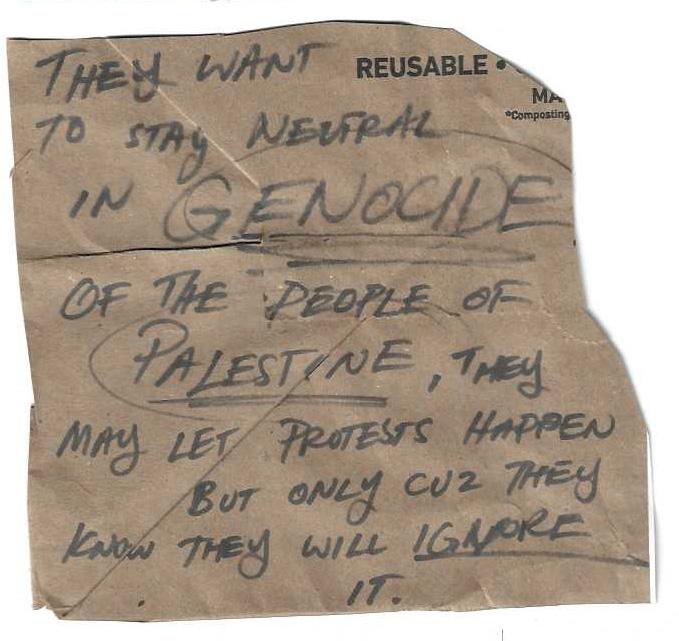 THEY WANT
REUSABLE •
MA
*Composting
TO STAY NEUTRAL
IN GENOCIDE
OF THE PEOPLE OF
PALESTINE, THEY
MAY LET PROTESTS HAPPEN
BUT ONLY CUZ THEY
KNOW THEY WILL IGNORE
IT.